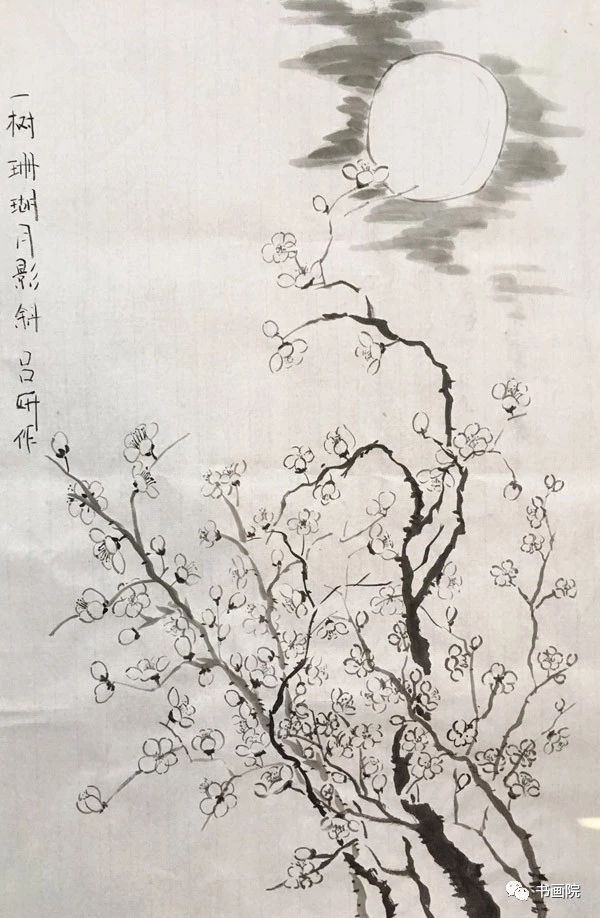 一树珊瑚月影斜 吕妍作
书画院